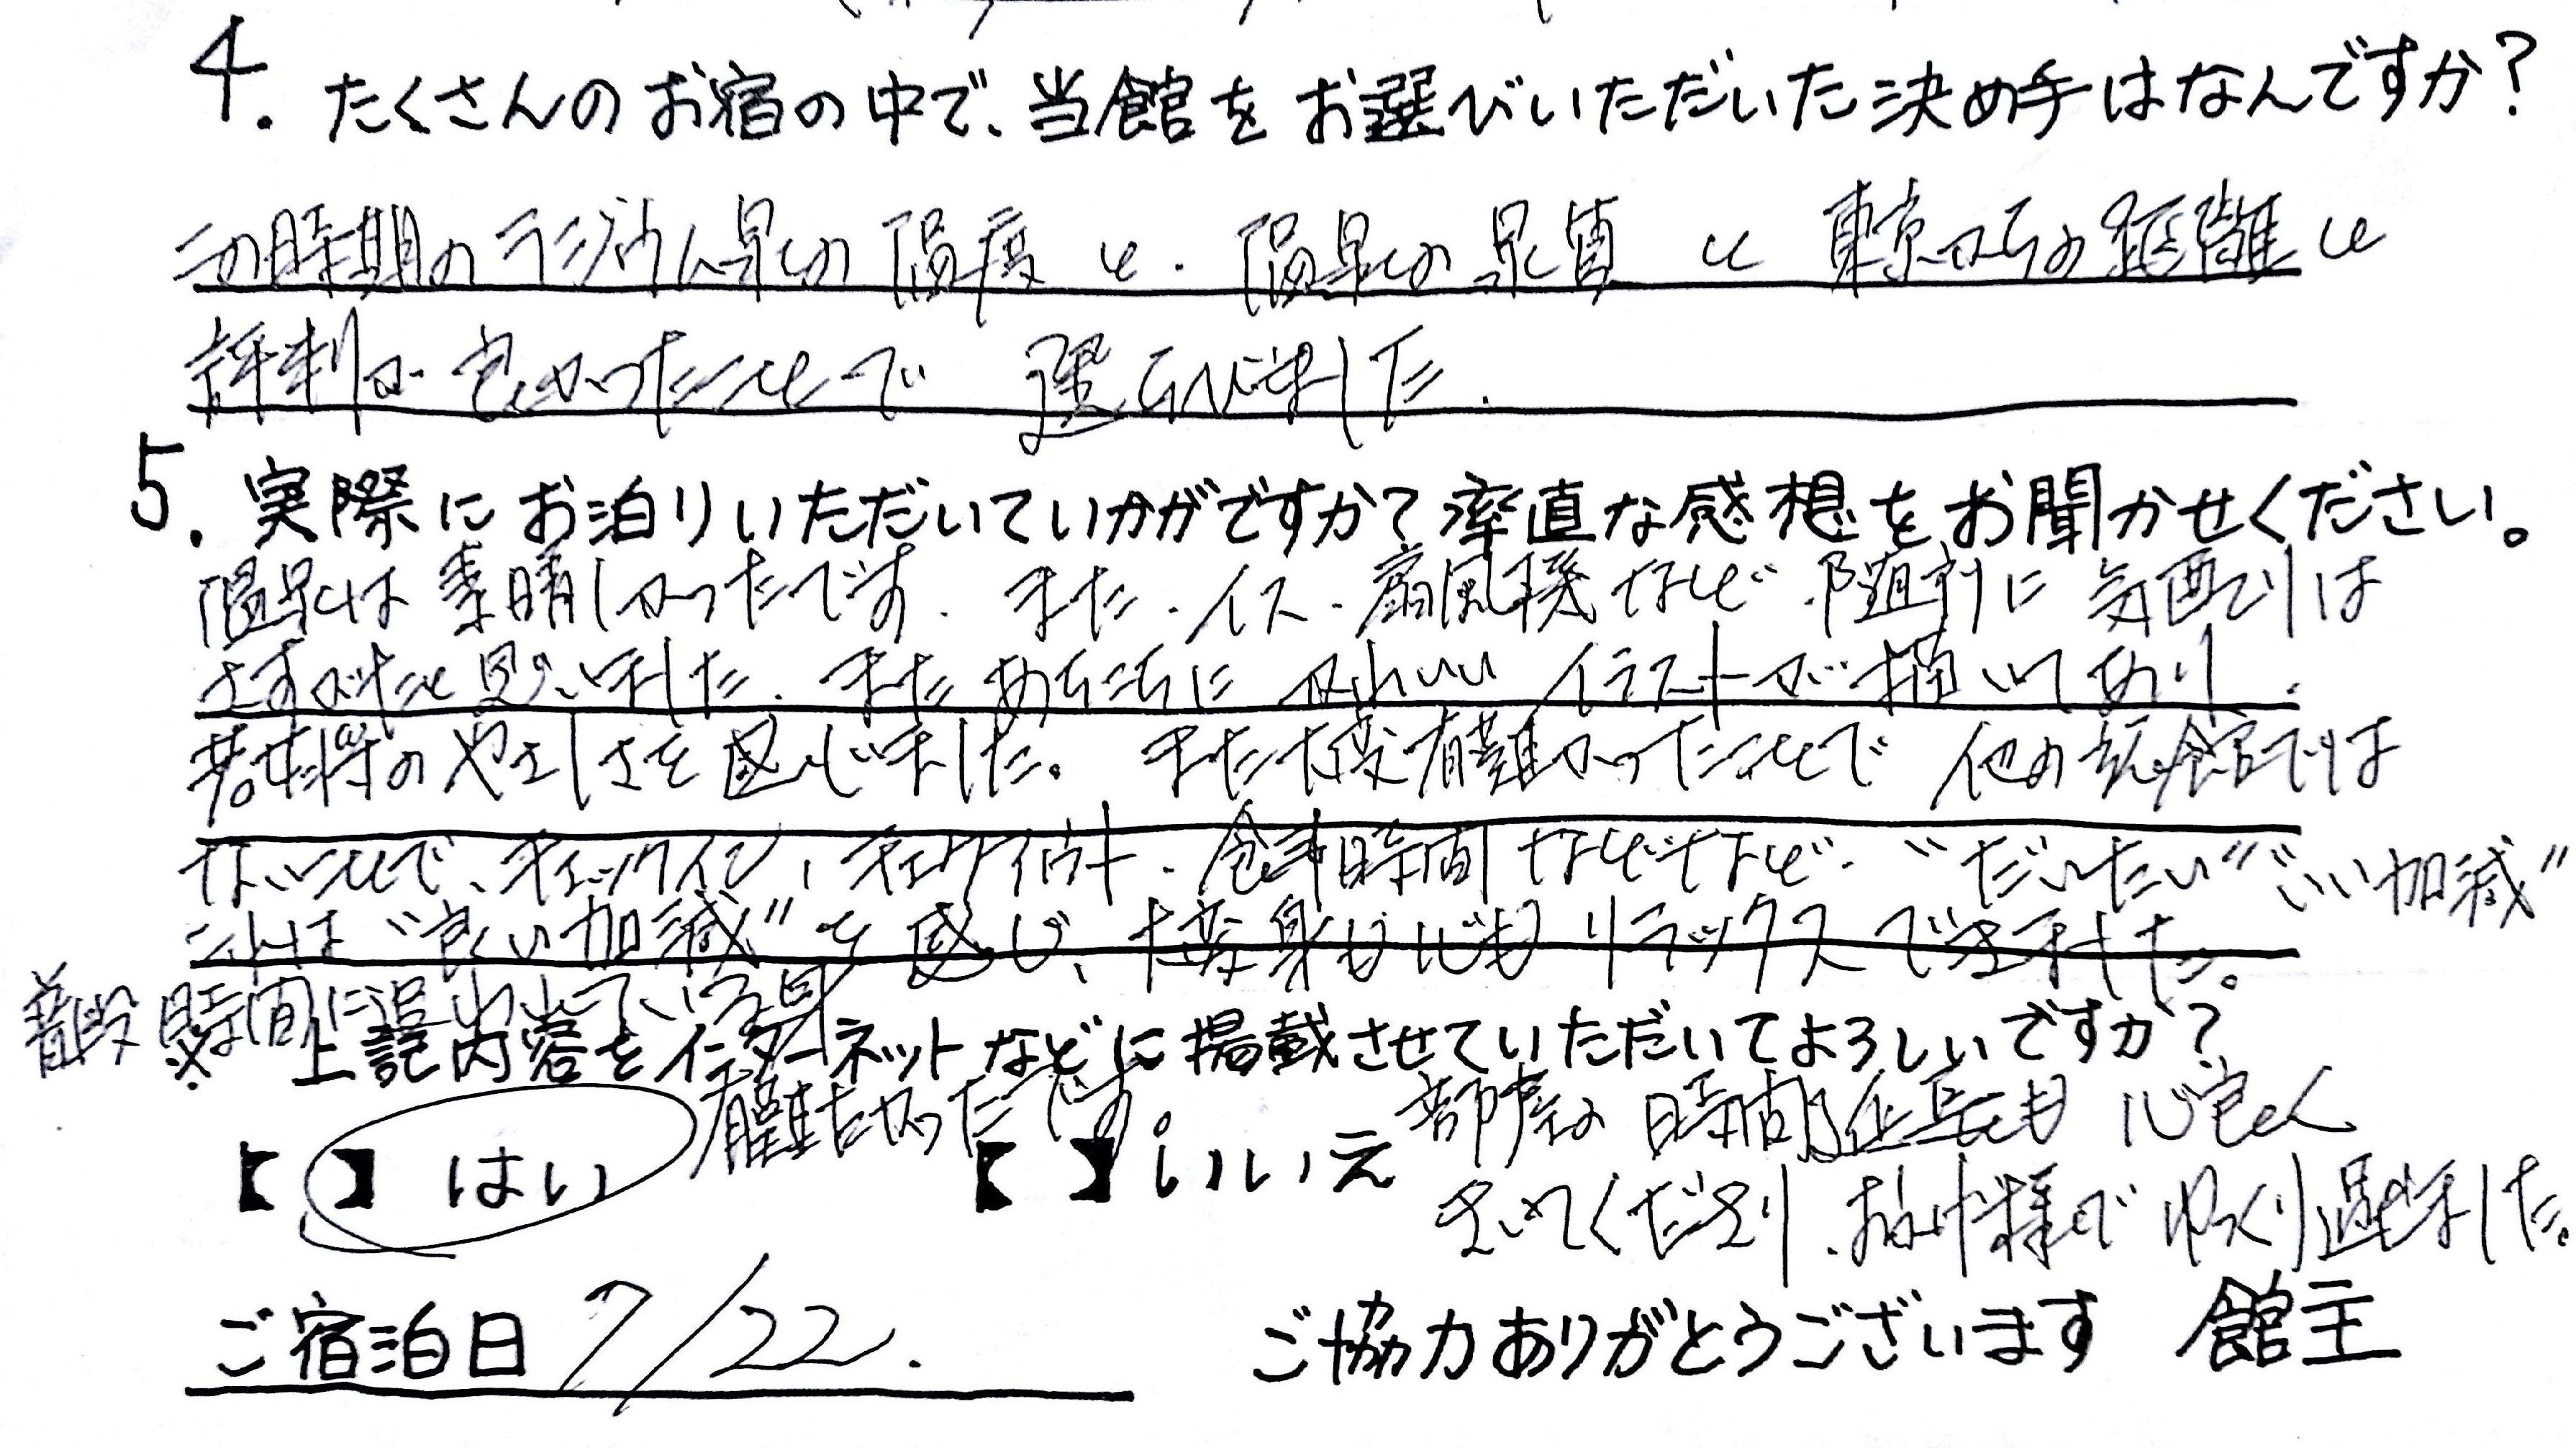 4. たくさんのお宿の中で、当館をお選びいただいた決め手はなんですか?
この時期のラジウム泉の温度と、温泉の泉質と東京からの距離と
評判が良かったことで選らびました.
5. 実際にお泊りいただいていかがですか?率直な感想をお聞かせください。
温泉は素晴しかったです.また.イス.扇風機など.随所に気配りは
さすがだと思いました.またあちこちに かわいい イラストが描いてあり.
若女将のやさしさを感じました。また大変有難かったことで 他の旅館では
ないことで、チェックイン、チェックアウト.食事時間などなど.“だいたい”“いい加減”
これは“良い加減”を感じ、大変身も心もリラックスできました。
普段時間に追われている身
有難たかったです。
※ 上記内容をインターネットなどに掲載させていただいてよろしいですか?
部屋の時間延長も心良く
【 】はい 【 】いいえ
きいてくださり.おかげ様でゆっくり過せました。
ご宿泊日 7/22.
ご協力ありがとうございます 館主